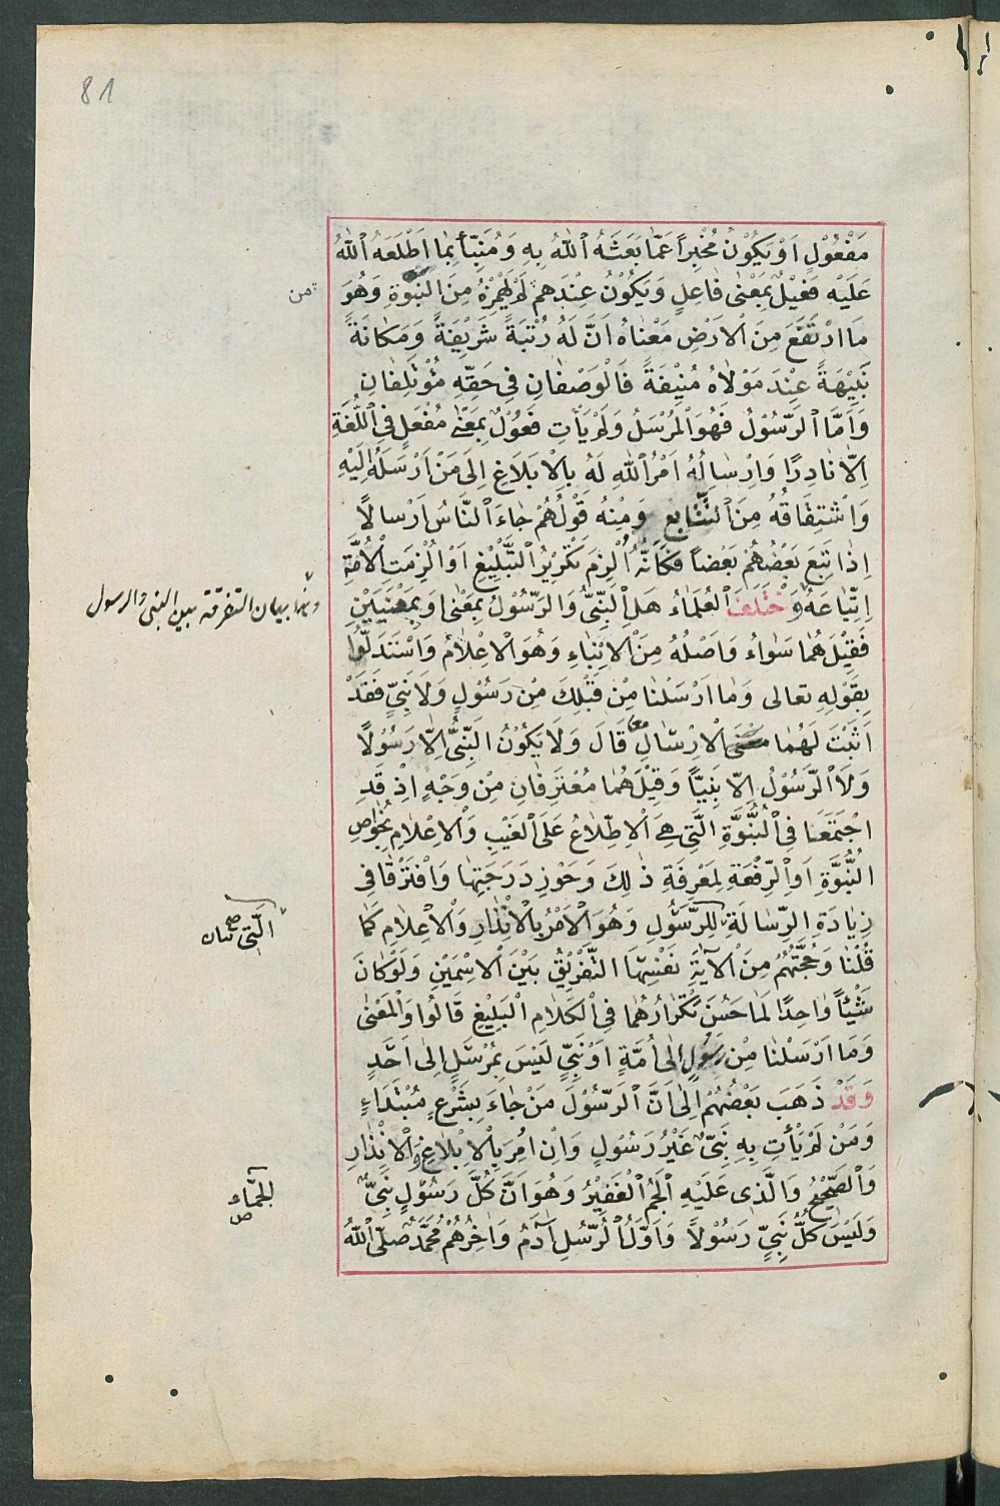 81
مَفْعُولٍ اَوْ يَكُوْنُ مُخْبِرًا عَمَّا بَعَثَهُ اللهُ بِهِ وَمُنَبِّأً بِمَا اَطْلَعَهُ اللهُ
عَلَيْهِ فَعِيْلٌ بِمَعْنٰى فَاعِلٍ وَيَكُوْنُ عِنْدَهُمْ لَمْ يَهْمِزْهُ مِنَ النَّبْوَةِ وَهُوَ
من
مَا ارْتَفَعَ مِنَ الْاَرْضِ مَعْنَاهُ اَنَّ لَهُ رُتْبَةً شَرِيْفَةً وَمَكَانَةً
نَبِيْهَةً عِنْدَ مَوْلَاهُ مُنِيْفَةً فَالْوَصْفَانِ فِى حَقِّهِ مُؤْتَلِفَانِ
وَاَمَّا الرَّسُوْلُ فَهُوَ الْمُرْسَلُ وَلَمْ يَأْتِ فَعُوْلٌ بِمَعْنٰى مُفْعَلٍ فِى اللُّغَةِ
اِلَّا نَادِرًا وَاِرْسَالُهُ اَمْرُ اللهِ لَهُ بِالْاِبَلَاغِ اِلَى مَنْ اَرْسَلَهُ اِلَيْهِ
وَاشْتِقَاقُهُ مِنَ التَّتَابُعِ وَمِنْهُ قَوْلُهُمْ جَاءَ النَّاسُ اَرْسَالًا
اِذَا تَبِعَ بَعْضُهُمْ بَعْضًا فَكَاَنَّهُ اُلْزِمَ تَكْرِيْرُ التَّبْلِيْغِ اَوْ اُلْزِمَتِ الْاُمَّةُ
اِتِّبَاعَهُ وَ خْتَلَفَ الْعُلَمَاءُ هَلِ النَّبِىُّ وَالرَّسُوْلُ بِمَعْنًى اَوْ بِمَعْنَيَيْنِ
وهذا بيان التفرقة بين النبى والرسول
فَقِيْلَ هُمَا سَوَاءٌ وَاَصْلُهُ مِنَ الْاِنْبَاءِ وَهُوَ الْاِعْلَامُ وَاسْتَدَلُّوا
بِقَوْلِهِ تعالى وَمَا اَرْسَلْنَا مِنْ قَبْلِكَ مِنْ رَسُوْلٍ وَلَا نَبِىٍّ فَقَدْ
اَثْبَتَ لَهُمَا معا الْاِرْسَالَ قَالَ وَلَا يَكُوْنُ النَّبِىُّ اِلَّا رَسُوْلًا
وَلَا الرَّسُوْلُ اِلَّا نَبِيًّا وَقِيْلَ هُمَا مُفْتَرِقَانِ مِنْ وَجْهٍ اِذْ قَدِ
اجْتَمَعَا فِى النُّبُوَّةِ الَّتِى هِىَ الْاِطِّلَاعُ عَلَى الْغَيْبِ وَالْاِعْلَامِ بِخَوَاصِّ
النُّبُوَّةِ اَوِ الرِّفْعَةِ لِمَعْرِفَةِ ذٰلِكَ وَحَوْزِ دَرَجَتِهَا وَافْتَرَقَا فِى
زِيَادَةِ الرِّسَالَةِ لِلرَّسُوْلِ وَهُوَ الْاَمْرُ بِالْاِنْذَارِ وَالْاِعْلَامِ كَمَا
الَّتِى
قُلْنَا وَحُجَّتُهُمْ مِنَ الْاٰيَةِ نَفْسِهَا التَّفْرِيْقُ بَيْنَ الْاِسْمَيْنِ وَلَوْ كَانَ
شَيْئًا وَاحِدًا لَمَا حَسُنَ تَكْرَارُهُمَا فِى الْكَلَامِ الْبَلِيْغِ قَالُوا وَالْمَعْنٰى
وَمَا اَرْسَلْنَا مِنْ رَسُوْلٍ اِلٰى اُمَّةٍ اَوْ نَبِىٍّ لَيْسَ بِمُرْسَلٍ اِلٰى اَحَدٍ
وَقَدْ ذَهَبَ بَعْضُهُمْ اِلٰى اَنَّ الرَّسُوْلَ مَنْ جَاءَ بِشَرْعٍ مُبْتَدَاءٍ
وَمَنْ لَمْ يَأْتِ بِهِ نَبِىٌّ غَيْرُ رَسُوْلٍ وَاِنْ اُمِرَ بِالْاِبْلَاغِ وَالْاِنْذَارِ
وَالصَّحِيْحُ وَالَّذِى عَلَيْهِ الْجَمُّ الْغَفِيْرُ وَهُوَ اَنَّ كُلَّ رَسُوْلٍ نَبِىٌّ
الجمّاء
ص
وَلَيْسَ كُلُّ نَبِىٍّ رَسُوْلًا وَاَوَّلُ الرُّسُلِ اٰدَمُ وَاٰخِرُهُمْ مُحَمَّدٌ صَلَّى اللهُ